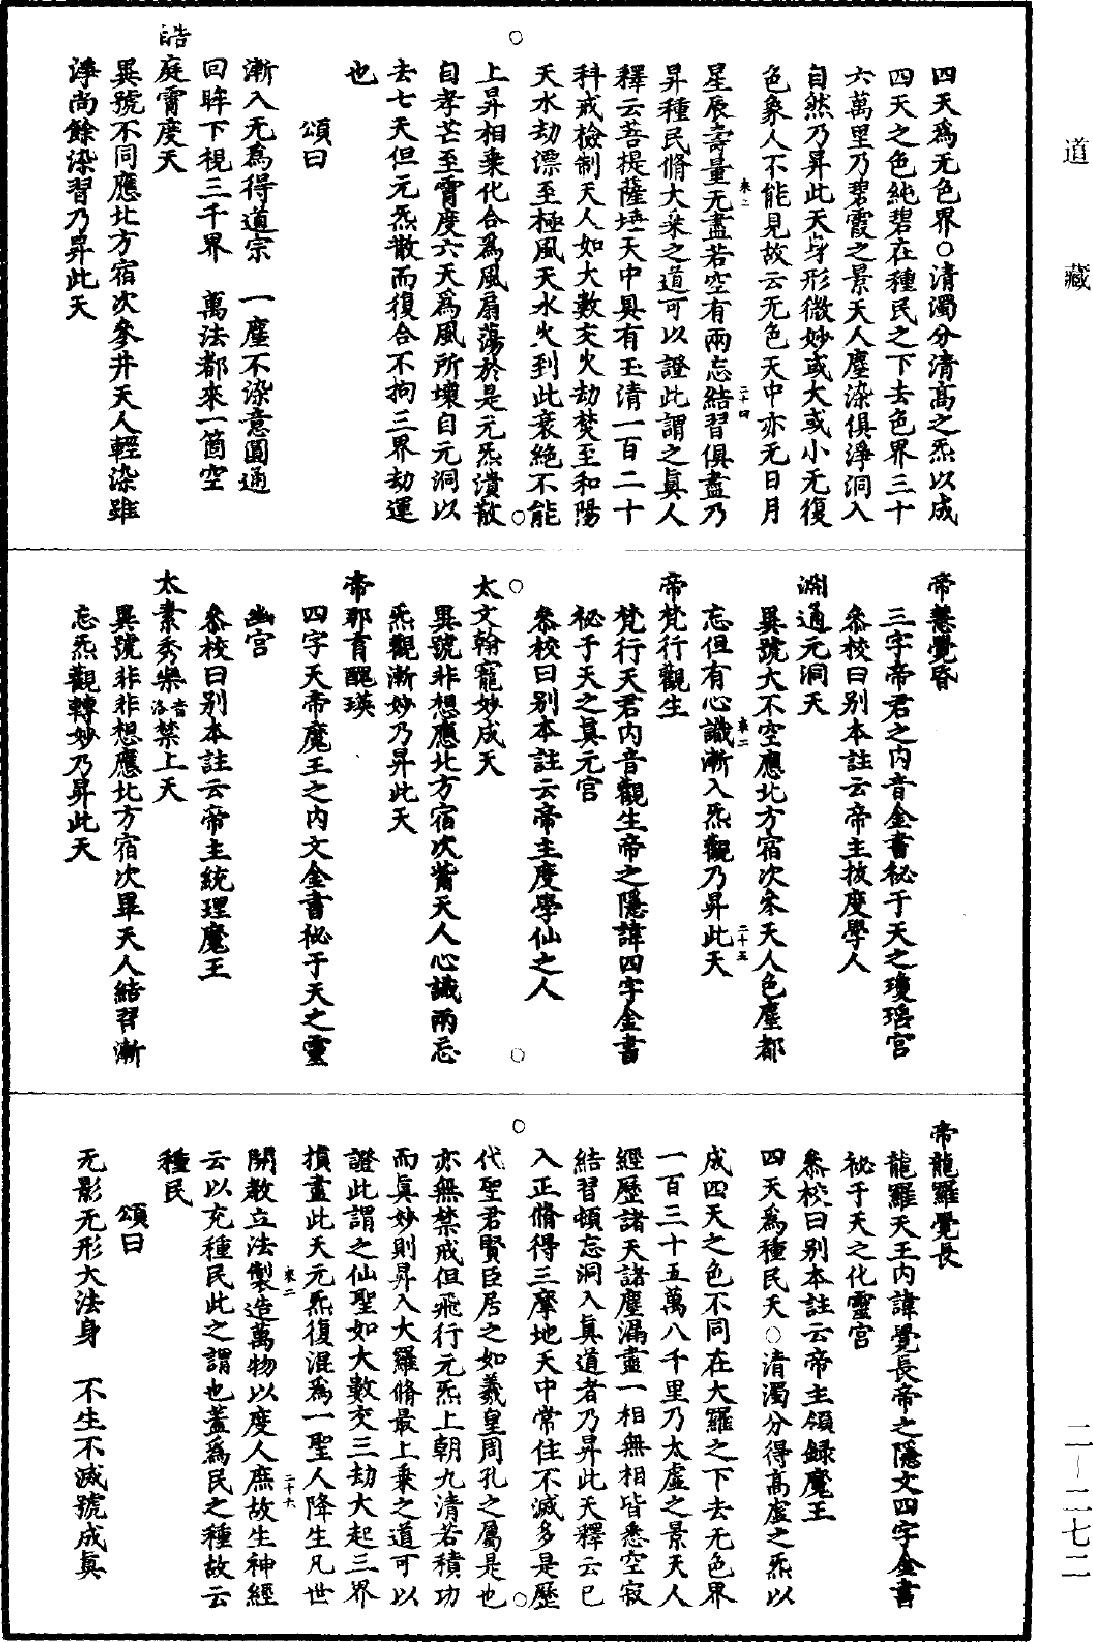 道藏
四天爲无色界○清濁分清高之炁以成
四天之色純碧在種民之下去色界三十
六萬里乃碧霞之景天人塵染俱淨洞入
自然乃昇此天身形微妙或大或小无復
色象人不能見故云无色天中亦无日月
來二
二十四
星辰壽量无盡若空有兩忘結習俱盡乃
昇種民脩大乘之道可以證此謂之眞人
釋云菩提薩埵天中具有玉清一百二十
科戒檢制天人如大數交火劫焚至和陽
天水劫漂至極風天水火到此衰絶不能
上昇相乘化合爲風扇蕩於是元炁潰散
自孝芒至霄度六天爲風所壞自元洞以
去七天但元炁散而復合不拘三界劫運
也
頌曰
漸入无爲得道宗 一塵不染意圓通
回眸下視三千界 萬法都來一箇空
皓庭霄度天
異號不同應北方宿次參井天人輕染雖
淨尚餘染習乃昇此天
帝慧覺昏
三字帝君之内音金書祕于天之瓊瑶宮
叅校曰别本註云帝主拔度學人
淵通元洞天
異號大不空應北方宿次奎天人色塵都
來二
二十五
忘但有心識漸入炁觀乃昇此天
帝梵行觀生
梵行天君内音觀生帝之隱諱四字金書
祕于天之眞元宮
叅校曰别本註云帝主度學仙之人
太文翰寵妙成天
異號非想應北方宿次觜天人心識兩忘
炁觀漸妙乃昇此天
帝那育醜瑛
四字天帝魔王之内文金書祕于天之靈
幽宮
叅校曰别本註云帝主統理魔王
太素秀樂音洛禁上天
異號非非想應北方宿次畢天人結習漸
忘炁觀轉妙乃昇此天
帝龍羅覺長
龍羅天王内諱覺長帝之隱文四字金書
祕于天之化靈宮
叅校曰别本註云帝主領録魔王
四天爲種民天○清濁分得高虛之炁以
成四天之色不同在大羅之下去无色界
一百三十五萬八千里乃太虛之景天人
經歷諸天諸塵漏盡一相無相皆悉空寂
結習頓忘洞入眞道者乃昇此天釋云已
入正脩得三摩地天中常住不滅多是歷
代聖君賢臣居之如羲皇周孔之屬是也
亦無禁戒但飛行元炁上朝九清若積功
而眞妙則昇入大羅脩最上乘之道可以
證此謂之仙聖如大數交三劫大起三界
損盡此天元炁復混爲一聖人降生凡世
來二
二十六
開教立法製造萬物以度人庶故生神經
云以充種民此之謂也蓋爲民之種故云
種民
頌曰
无影无形大法身 不生不滅號成眞
二－二七二